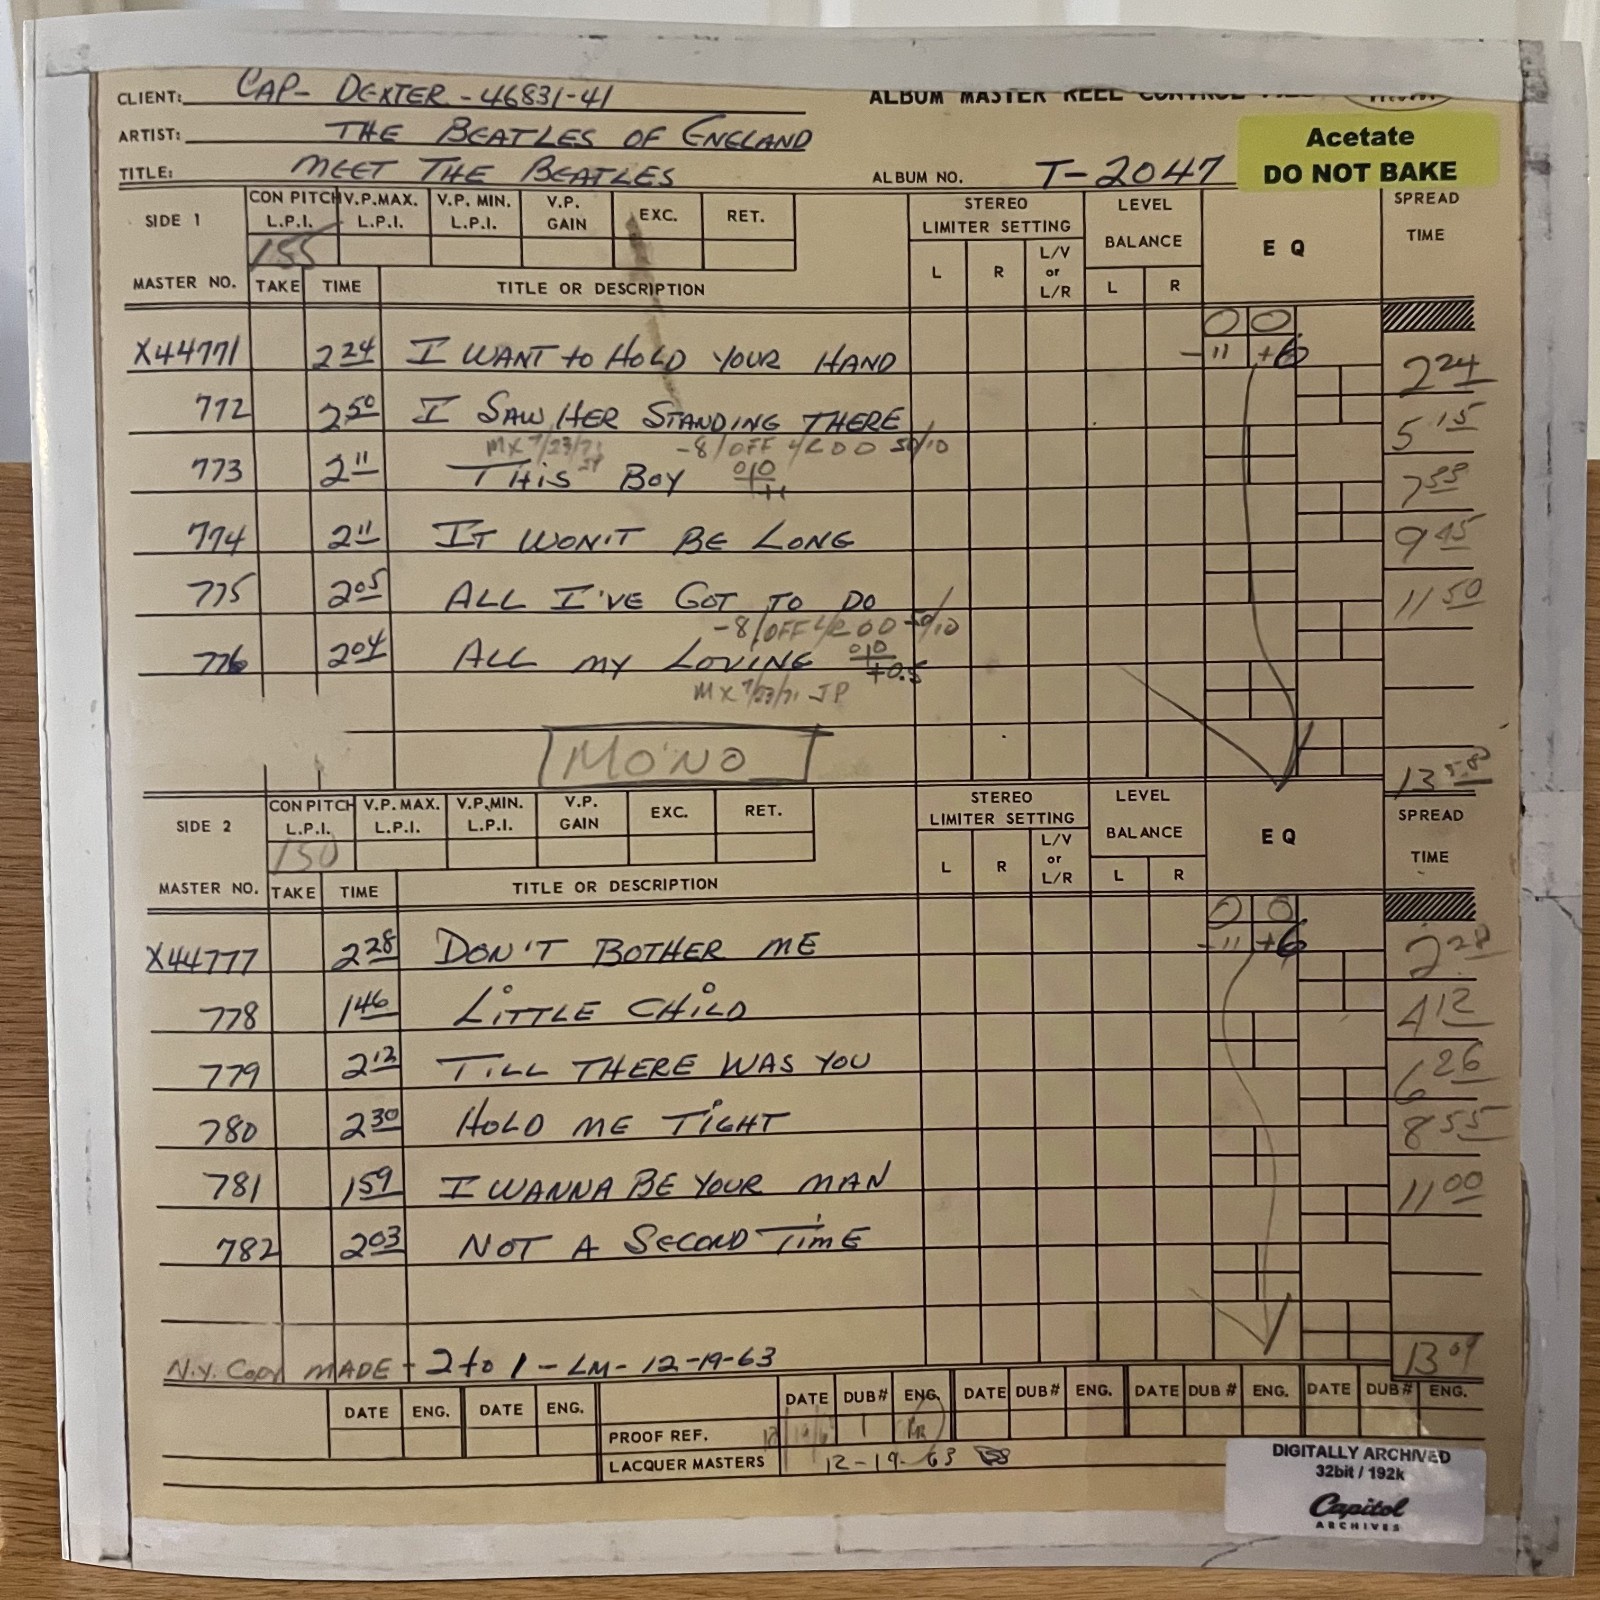 CLIENT: CAP- DEXTER - 46831-41
ALBUM MASTER REEL CONTROL
ARTIST: THE BEATLES OF ENGLAND
Acetate
DO NOT BAKE
TITLE: MEET THE BEATLES
ALBUM NO. T-2047
SIDE 1 CON PITCH L.P.I. V.P.MAX. L.P.I. V.P. MIN. L.P.I. V.P. GAIN EXC. RET. STEREO LIMITER SETTING LEVEL BALANCE E Q SPREAD TIME
155
L R L/V or L/R L R
MASTER NO. TAKE TIME TITLE OR DESCRIPTION
0 0
X44771 2 24 I WANT to HOLD YOUR HAND -11 +6 2 24
772 2 50 I SAW HER STANDING THERE 5 15
MX 7/23/71 JP -8/OFF 4/200 50/10
773 2 11 THIS BOY 0|0
774 2 11 IT WON'T BE LONG 9 45
775 2 05 ALL I'VE GOT TO DO 11 50
-8/OFF 4/200 50/10
776 2 04 ALL MY LOVING 0|0 +0.5
MX 7/23/71 JP
MONO
13 58
SIDE 2 CON PITCH L.P.I. V.P. MAX. L.P.I. V.P. MIN. L.P.I. V.P. GAIN EXC. RET. STEREO LIMITER SETTING LEVEL BALANCE E Q SPREAD TIME
150
L R L/V or L/R L R
MASTER NO. TAKE TIME TITLE OR DESCRIPTION
0 0
X44777 2 28 DON'T BOTHER ME -11 +6 2 28
778 1 46 LITTLE CHILD 4 12
779 2 12 TILL THERE WAS YOU 6 26
780 2 30 HOLD ME TIGHT 8 55
781 1 59 I WANNA BE YOUR MAN 11 00
782 2 03 NOT A SECOND TIME
13 09
N.Y. Copy MADE - 2 to 1 - LM - 12-19-63
DATE ENG. DATE ENG. DATE DUB# ENG. DATE DUB# ENG. DATE DUB # ENG. DATE DUB# ENG.
PROOF REF. 1
LACQUER MASTERS 12-19-63
DIGITALLY ARCHIVED
32bit / 192k
Capitol
ARCHIVES